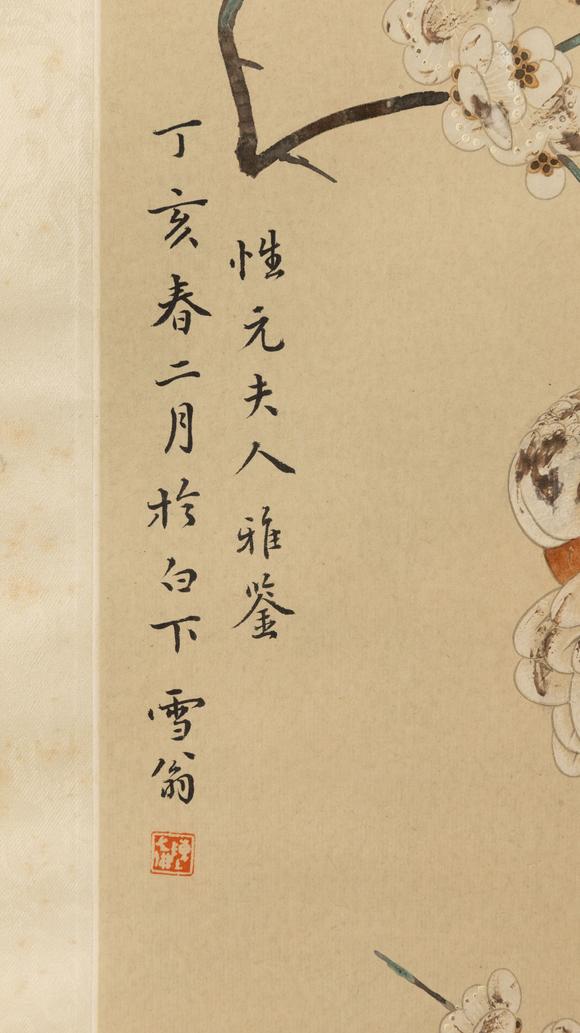 性元夫人雅鉴
丁亥春二月於白下 雪翁